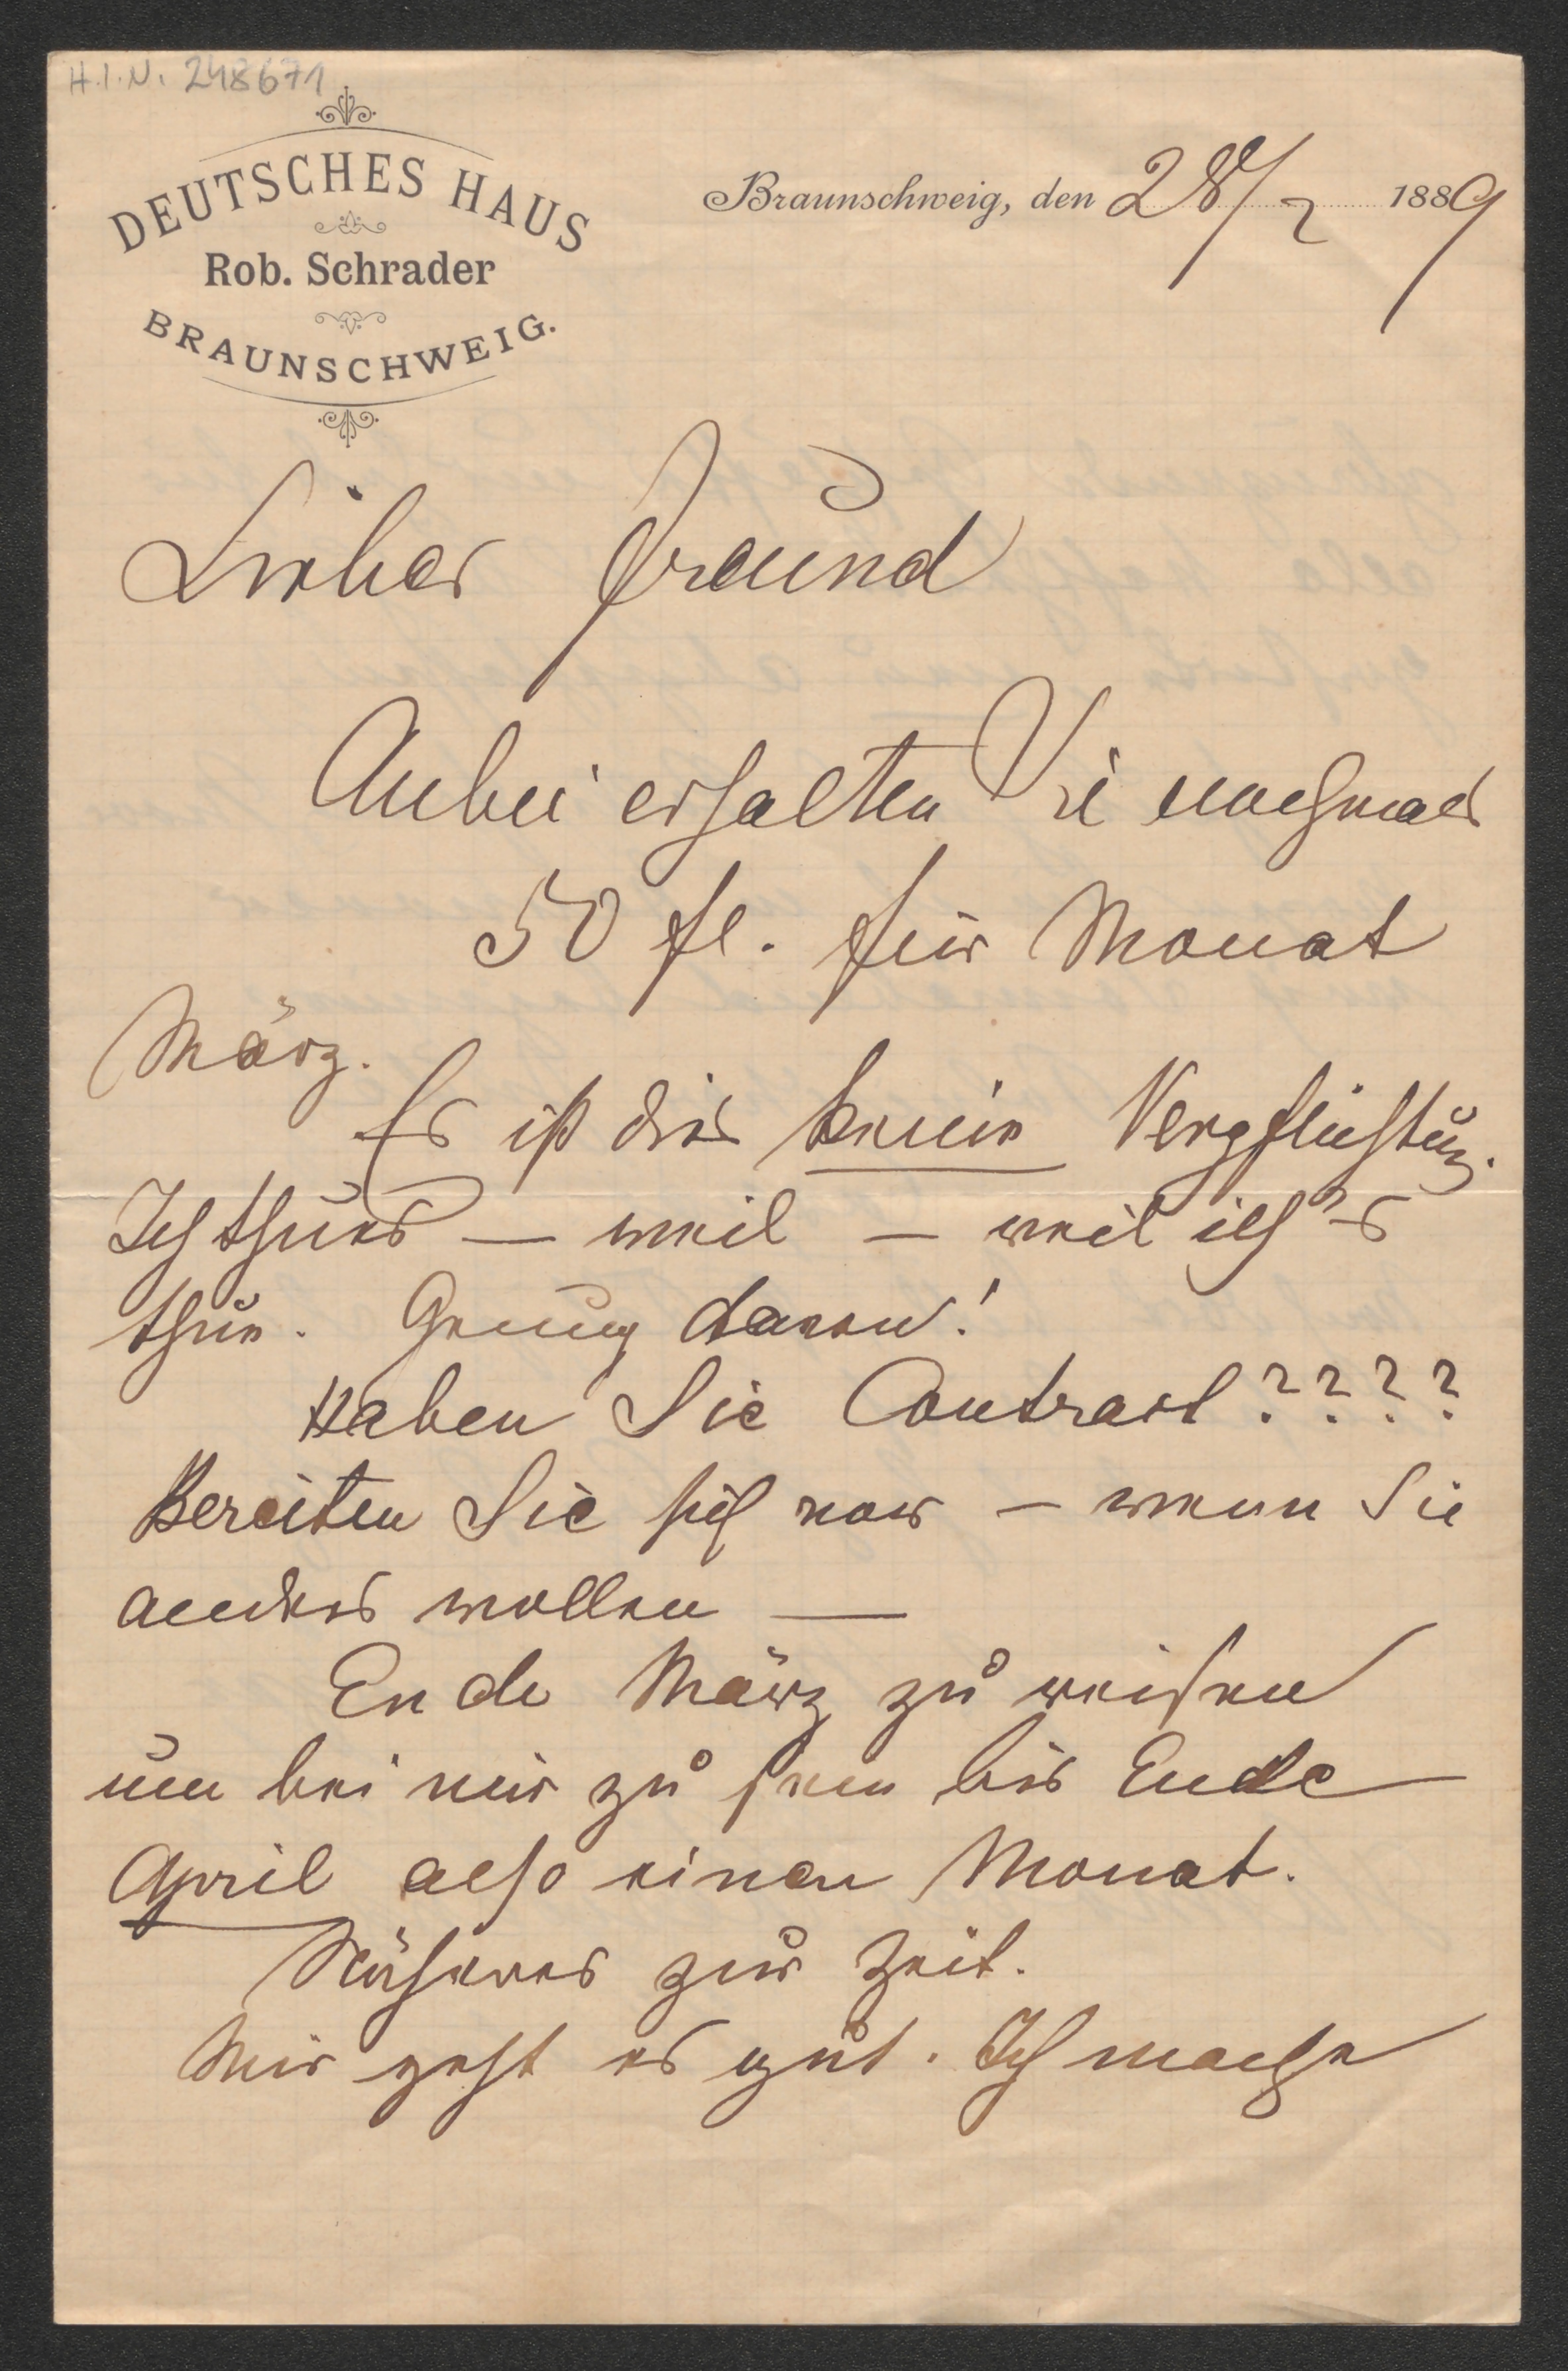 H.I.N. 248671
DEUTSCHES HAUS
Rob. Schrader
BRAUNSCHWEIG.
Braunschweig, den 28/2 1889
Lieber Freund
Anbei erhalten Sie nochmals
50 fl. für Monat
März.
Es ist dies keine Verpflichtung.
Ich thues — weil — weil ich's
thue. Genug davon!
Haben Sie Contract????
Bereiten Sie sich vor — wenn Sie
anders wollen —
Ende März zu reisen
um bei mir zu sein bis Ende
April also einen Monat.
Näheres zur Zeit.
Mir geht es gut. Ich mache